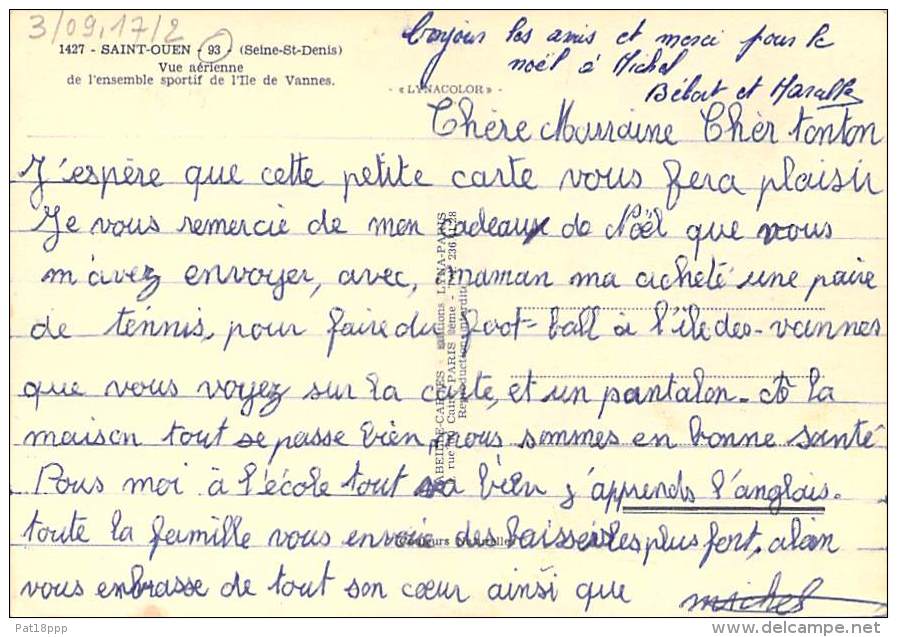 3/09,17/2
1427 - SAINT-OUEN - 93 - (Seine-St-Denis)
Vue aérienne
de l'ensemble sportif de l'Ile de Vannes.
bonjour les amis et merci pour le
noël à Michel
Bébert et
- «LYNACOLOR» -
Chère Marraine Chèr tonton
J'espère que cette petite carte vous fera plaisir
Je vous remercie de mon cadeaux de Noël que vous
m'avez envoyer, avec, maman ma acheté une paire
de tennis, pour faire du foot-ball à l'île des-vannes
que vous voyez sur la carte, et un pantalon. A la
maison tout se passe bien, nous sommes en bonne santé
Pous moi à l'école tout va bien j'apprends l'anglais.
toute la famille vous envoie des baisers les plus fort, alain
vous embrasse de tout son cœur ainsi que michel
ABEILLE-CARTES - Editions LYNA-PARIS
rue du Caire, PARIS 2ème - Tél. 236
Reproduction interdite
Couleurs Naturelles
Pat18ppp
delcampe.net